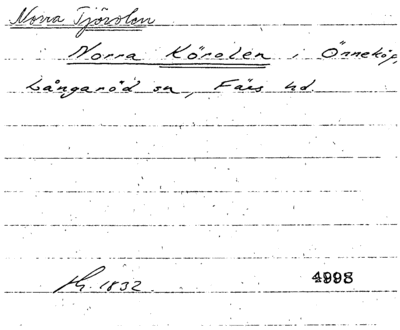 Norra Tjörolen
Norra Körolen, Önneköp,
Långaröd sn, Färs hd.
1832. 4998